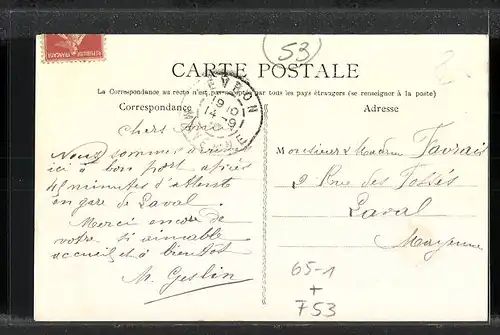 REPUBLIQUE FRANCAISE
(53)
CARTE POSTALE
EVRON
La Correspondance au recto n'est pas par tous les pays étrangers (se renseigner à la poste)
Correspondance
Adresse
19 10
14 - 9
Chers Amis
Nous sommes arrivés
ici à bon port après
45 minutes d'attente
en gare de Laval.
Merci encore de
votre si aimable
accueil et à bientôt
M. Geslin
Monsieur & Madame Tavrais
9 Rue des Fossés
Laval
Mayenne
65-1
+
753